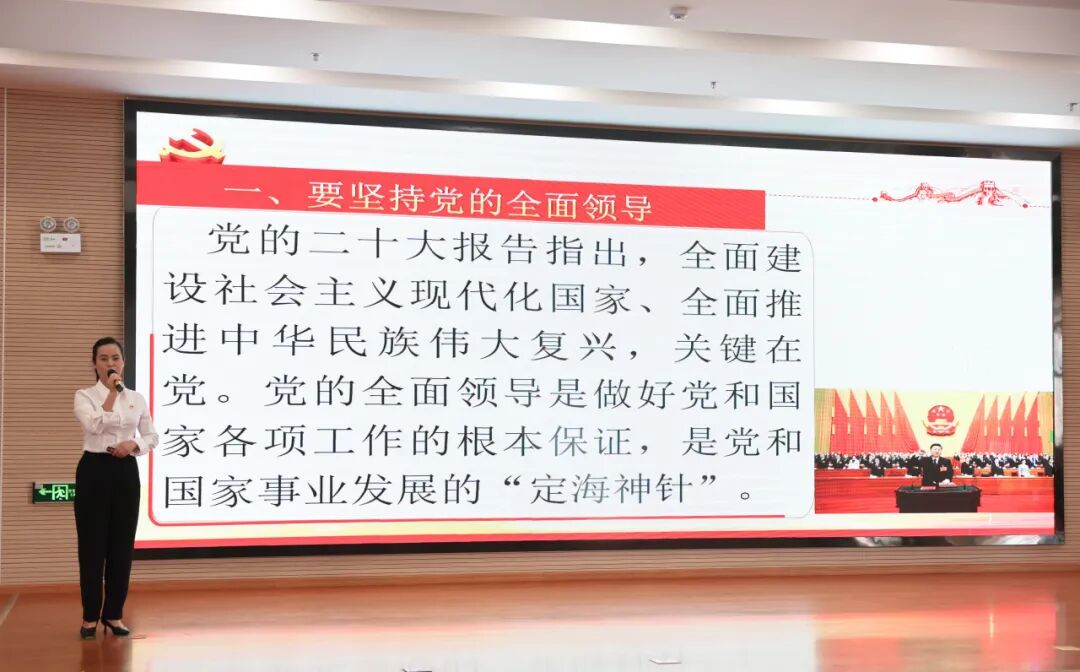 一、要坚持党的全面领导
党的二十大报告指出，全面建
设社会主义现代化国家、全面推
进中华民族伟大复兴，关键在
党。党的全面领导是做好党和国
家各项工作的根本保证，是党和
国家事业发展的“定海神针”。